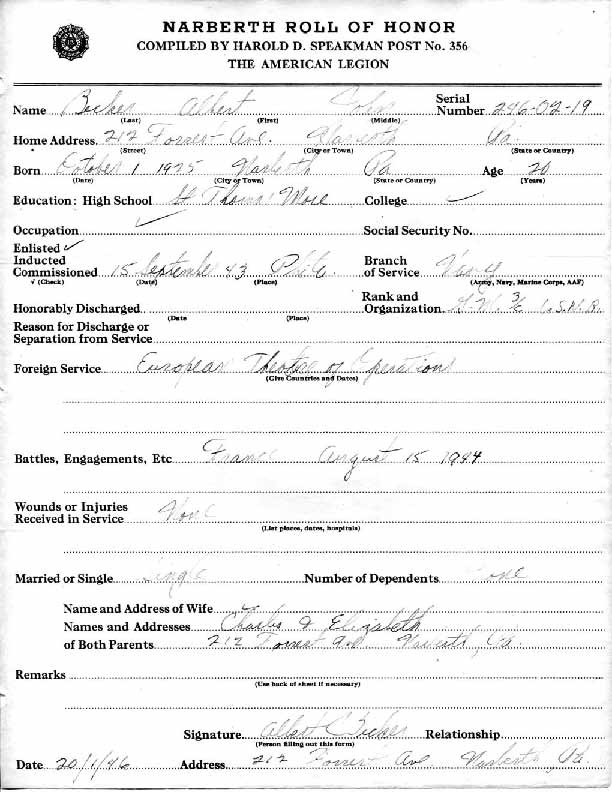 NARBERTH ROLL OF HONOR
COMPILED BY HAROLD D. SPEAKMAN POST No. 356
THE AMERICAN LEGION
Name Becker Albert John Serial Number 246-02-19
(Last) (First) (Middle)
Home Address. 212 Forrest Ave. Narberth Pa
(Street) (City or Town) (State or Country)
Born October 1 1925 Narberth Pa Age 20
(Date) (City or Town) (State or Country) (Years)
Education: High School St Thomas More College
Occupation Social Security No.
Enlisted ✓
Inducted
Commissioned 15 September 43 Phila. Branch of Service Navy
√ (Check) (Date) (Place) (Army, Navy, Marine Corps, AAF)
Honorably Discharged Rank and Organization 3/c U.S.N.R.
(Date (Place)
Reason for Discharge or
Separation from Service
Foreign Service European Theatre of Operations
(Give Countries and Dates)
Battles, Engagements, Etc France August 15 1944
Wounds or Injuries
Received in Service None
(List places, dates, hospitals)
Married or Single Single Number of Dependents None
Name and Address of Wife
Names and Addresses Charles & Elizabeth
of Both Parents 212 Forrest Ave. Narberth, Pa.
Remarks
(Use back of sheet if necessary)
Signature Albert Becker Relationship
(Person filling out this form)
Date 20/1/46 Address 212 Forrest Ave Narberth, Pa.